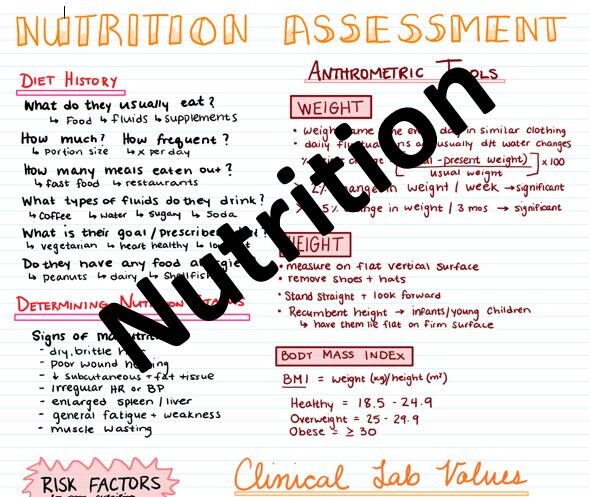 NUTRITION ASSESSMENT
DIET HISTORY
What do they usually eat?
↳ Food ↳ fluids ↳ supplements
How much? How frequent?
↳ portion size ↳ x per day
How many meals eaten out?
↳ fast food ↳ restaurants
What types of fluids do they drink?
↳ Coffee ↳ water ↳ sugary ↳ soda
What is their goal / prescribed
↳ vegetarian ↳ heart healthy ↳
Do they have any food
↳ peanuts ↳ dairy ↳ Shellfish
DETERMINING
Signs of
- dry, brittle
- poor wound
- ↓ subcutaneous + fat tissue
- irregular HR or BP
- enlarged spleen / liver
- general fatigue + weakness
- muscle wasting
RISK FACTORS
ANTHROMETRIC TOOLS
WEIGHT
• weigh same day in similar clothing
• daily usually d/t water changes
-present weight) x 100
usual weight
2% change in weight / week → significant
5% change in weight / 3 mos → significant
HEIGHT
• measure on flat vertical surface
• remove shoes + hats
• Stand straight + look forward
• Recumbent height → infants/young children
↳ have them lie flat on firm surface
BODY MASS INDEX
BMI = weight (kg)/height (m²)
Healthy = 18.5 - 24.9
Overweight = 25 - 29.9
Obese = ≥ 30
Clinical Lab Values
Nutrition